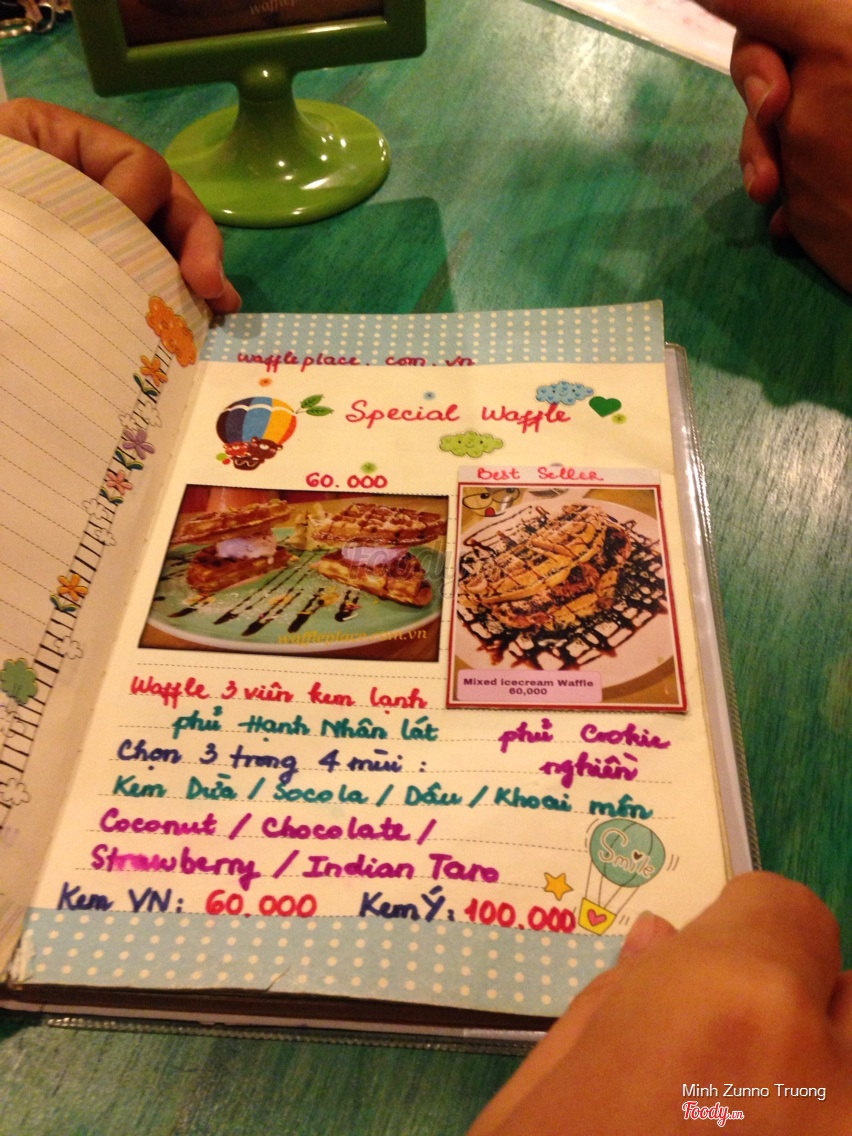 waffleplace.com.vn
Special Waffle
60.000
Best Seller
waffleplace.com.vn
Mixed icecream Waffle
60,000
Waffle 3 viên kem lạnh
phủ Hạnh Nhân lát
phủ Cookie
nghiền
Chọn 3 trong 4 mùi :
Kem Dừa / Socola / Dâu / Khoai môn
Coconut / Chocolate /
Strawberry / Indian Taro
Smile
Kem VN: 60.000 Kem Ý: 100.000
Minh Zunno Truong
Foody.vn